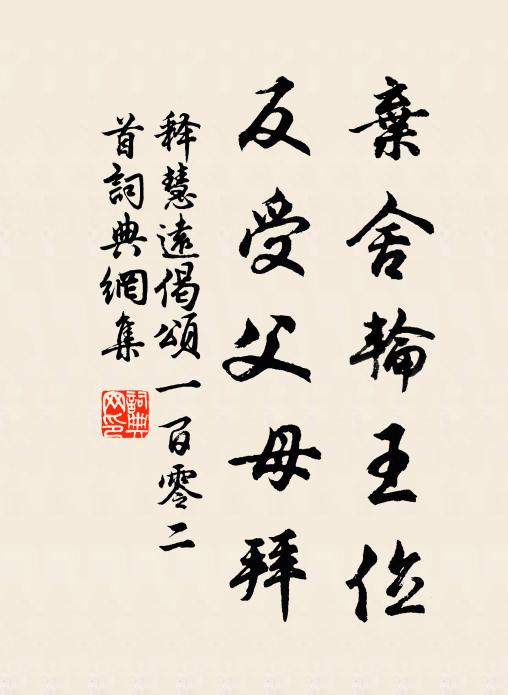 棄舍輪王位
反受父母拜
释慧遠偈頌一百零二
首詞典網集
詞典网印